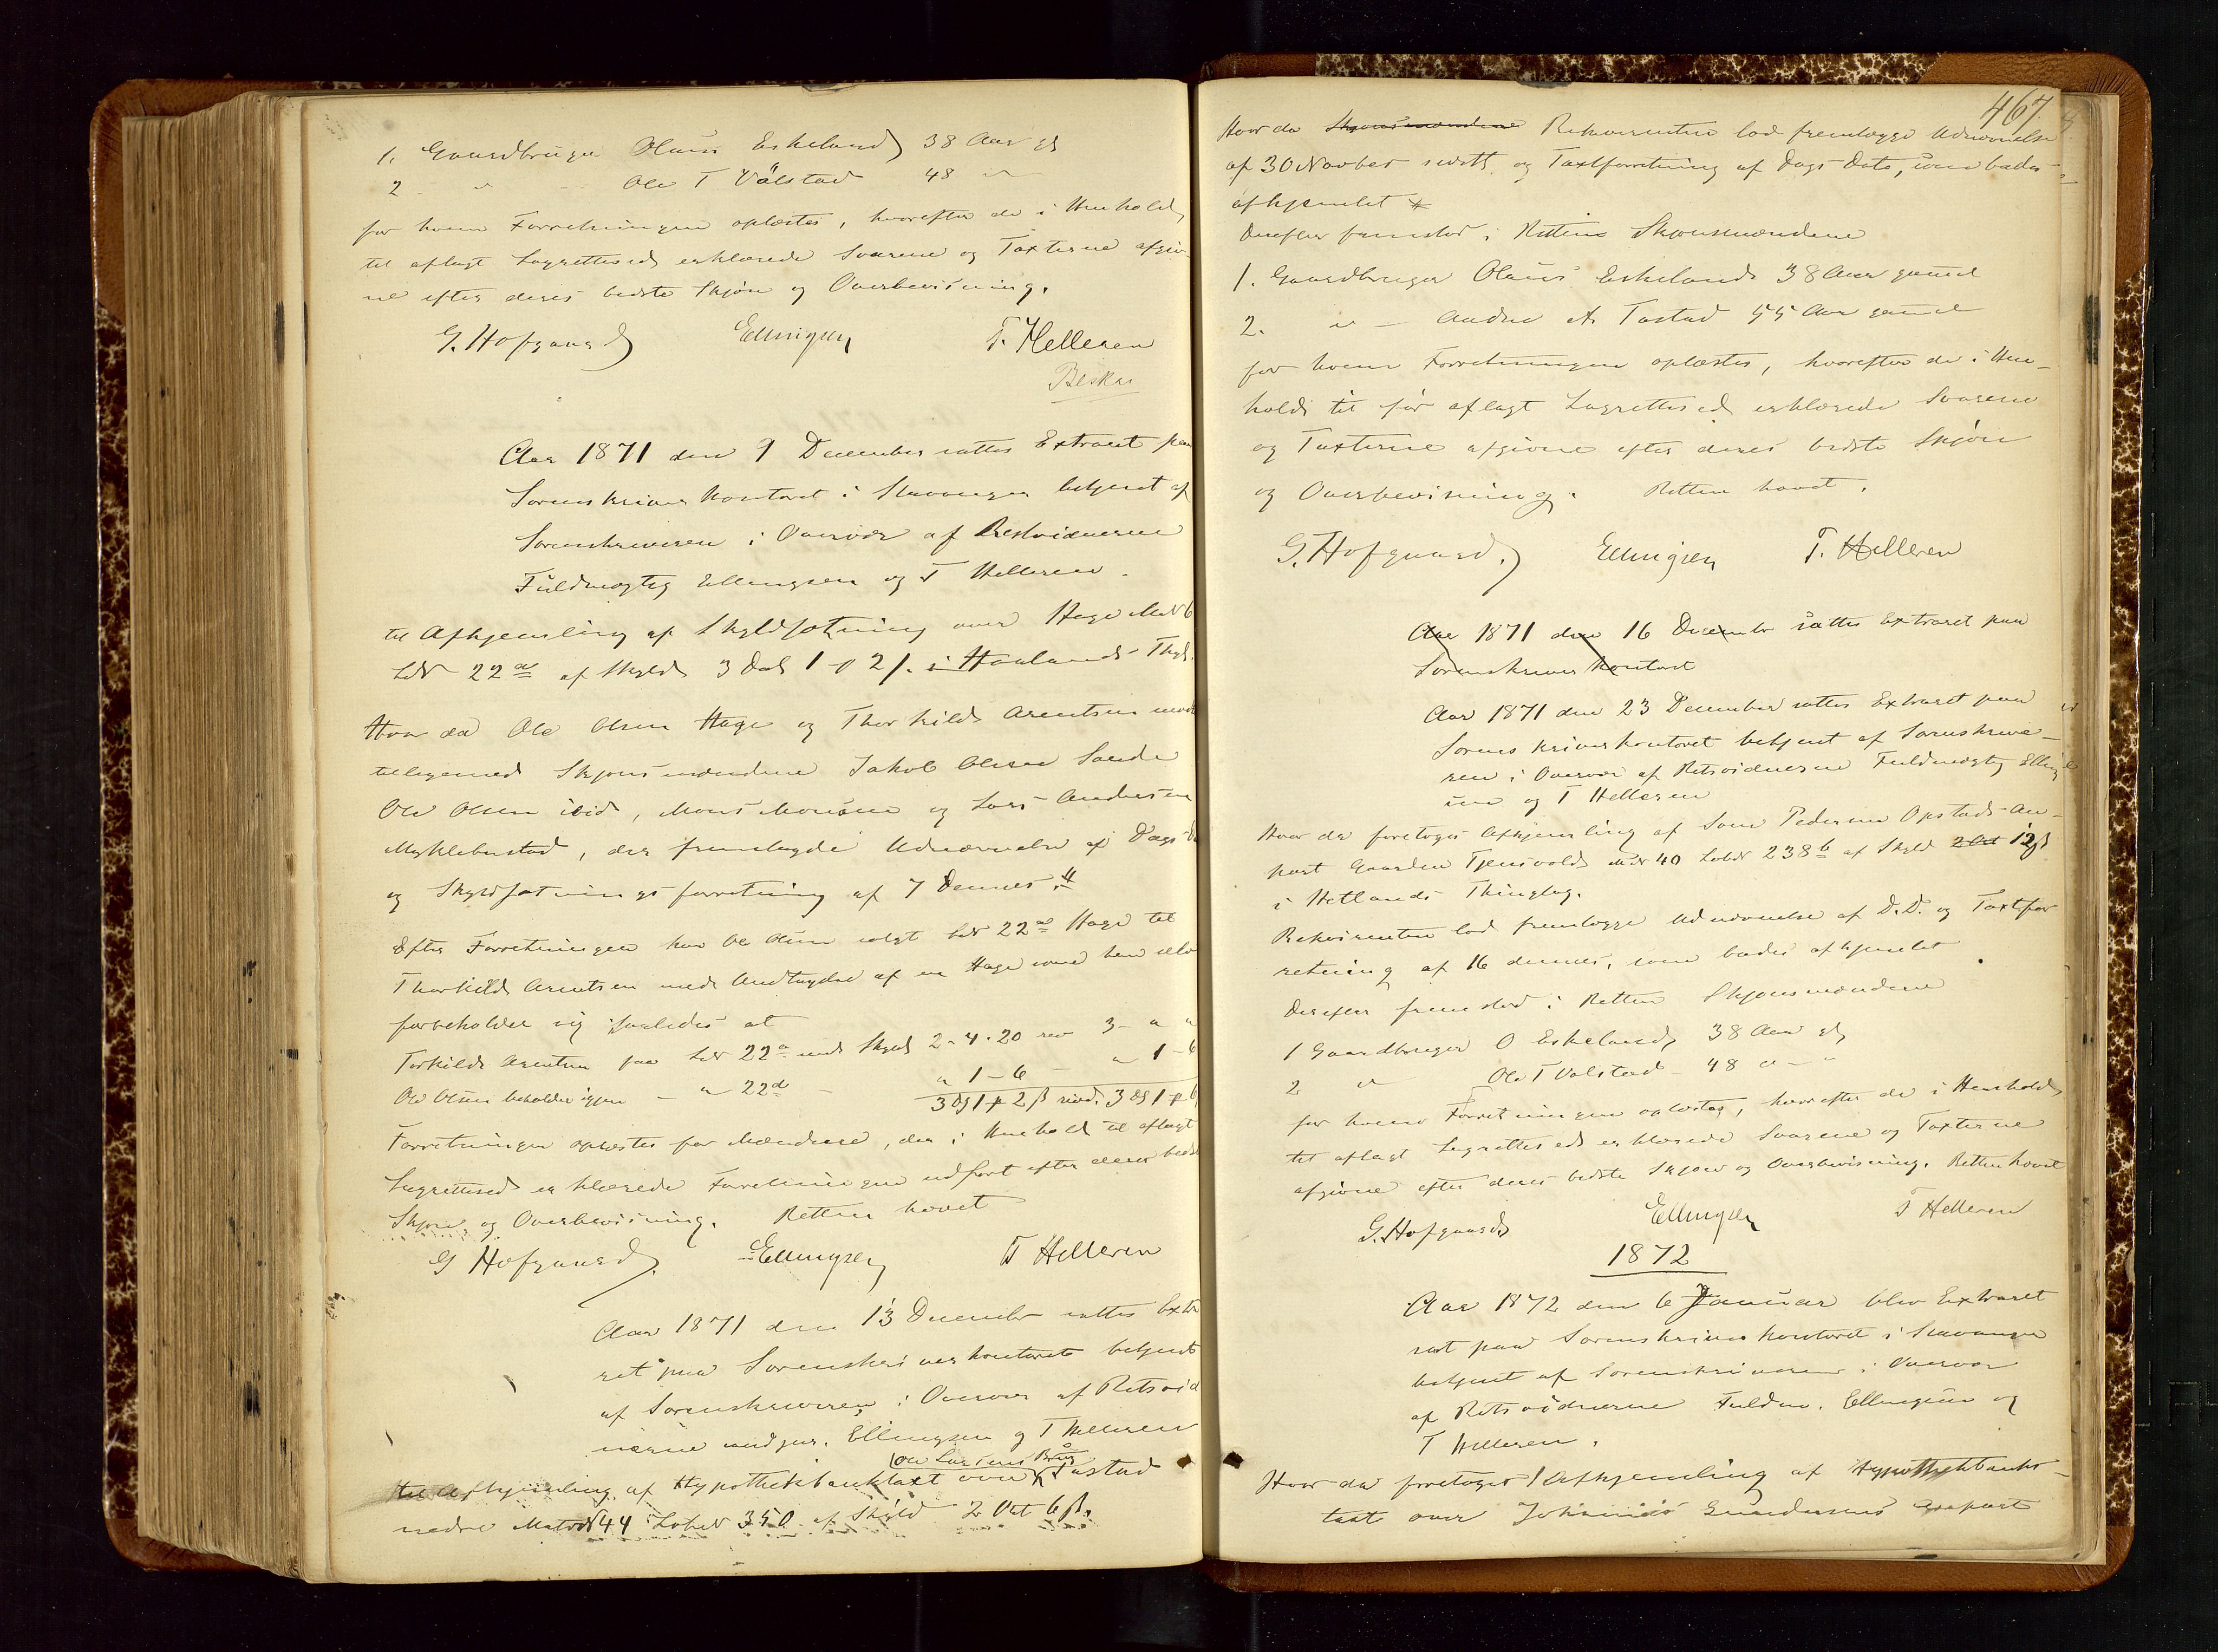 1. Gaardbruger Olaus Eskeland 38 Aar gl
2 " - Ole T Válstad 48 "
for hvem Forretningen oplæstes, hvorefter de i Henhold
til aflagt Lagrettesed erklærede Svarene og Taxterne afgiv-
ne efter deres bedste Skjøn og Overbevisning.
G. Hofgaard Ellingsen T. Helleren
Aar 1871 den 9 December sattes Extraret paa
Sorenskriverkontoret i Stavanger betjent af
Sorenskriveren i Overvær af Retsvidnerne
Fuldmægtig Ellingsen og T Helleren
til Afhjemling af Skyldsætning over Hage M No 6
L No 22 a af Skyld 3 Dal 1 # 2 /. i Haalands Thgl.
Hvor da Ole Olsen Hage og Thorkild Arentsen mødte
tilligemed Skjønsmændene Jakob Olsen Sande
Ole Olsen ibid, Mons Monsen og Lars Andersen
Myklebustad, der fremlagde Udnævnelse af Dags D
og Skyldsætningsforretning af 7 Dennes #
Efter Forretningen har Ole Olsen solgt L No 22 a Hage til
Thorkild Arentsen med Undtagelse af en Hage som han selv
forbeholder sig saaledes at
Torkild Arentsen faa L No 22 a med Skyld 2-4-20 rev 3 - " "
Ole Olsen beholder igjen - " 22 d - " 1-6 - " 1-6
3 Dl 1 # 2 ß revid. 3 Dl 1 # 6
Forretningen oplæstes for Mændene, der i Henhold til aflagt
Lagrettesed erklærede Forretningen udført efter deres bedste
Skjøn og Overbevisning. Retten hævet
G Hofgaard Ellingsen T Helleren
Aar 1871 den 13 December sattes Extra
ret paa Sorenskriverkontoret betjent
af Sorenskriveren i Overvær af Retsvid
nerne Ellingsen og T Helleren
Ole Larsens Brug
til Afhjemling af Hypothekbanktaxt over Tastad
nedre Matr No 44 Løbe No 350 af Skyld 2 Vet 6 ß.
467.
Hvor da Skjønsmændene Rekvirenten lod fremlægge Udnævnelse
af 30 Novber sidstl. og Taxtforretning af Dags Dato, som bades
afhjemlet #
Derefter fremstod i Retten Skjønsmændene
1. Gaardbruger Olaus Eskeland 38 Aar gammel
2. " - Andre A. Tastad 55 Aar gammel
for hvem Forretningen oplæstes, hvorefter de i Hen-
hold til før aflagt Lagrettesed erklærede Svarene
og Taxterne afgivne efter deres bedste Skjøn
og Overbevisning. Retten hævet.
G. Hofgaard. Ellingsen T. Helleren
Aar 1871 den 16 December sattes Extraret paa
Sorenskriverkontoret
Aar 1871 den 23 December sattes Extraret paa
Sorenskriverkontoret betjent af Sorenskrive-
ren i Overvær af Retsvidnerne Fuldmægtig Elling
sen og T Helleren
Hvor da foretoges Afhjemling af Pedersen Opstads An-
part Gaarden Tjensvold M No 40 Løb No 238 b af Skyld 12 ß
i Hetlands Thinglag.
Rekvirenten lod fremlægge Udnævnelse af D.D. og Taxtfor
retning af 16 dennes, som bades afhjemlet
Derefter fremstod i Retten Skjønsmændene
1 Gaardbruger O Eskeland 38 Aar gl
2 " Ole T Valstad - 48 " - "
for hvem Forretningen oplæstes, hvorefter de i Henhold
til aflagt Lagrettesed erklærede Svarene og Taxterne
afgivne efter deres bedste Skjøn og Overbevisning. Retten hævet
G. Hofgaard Ellingsen T Helleren
1872
Aar 1872 den 6 Januar blev Extraret
sat paa Sorenskriverkontoret i Stavanger
betjent af Sorenskriveren i Overvær
af Retsvidnerne Fuldm. Ellingsen og
T Helleren.
Hvor da foretoges Afhjemling af Hypothekbanks-
taxt over Gundersens Anpart